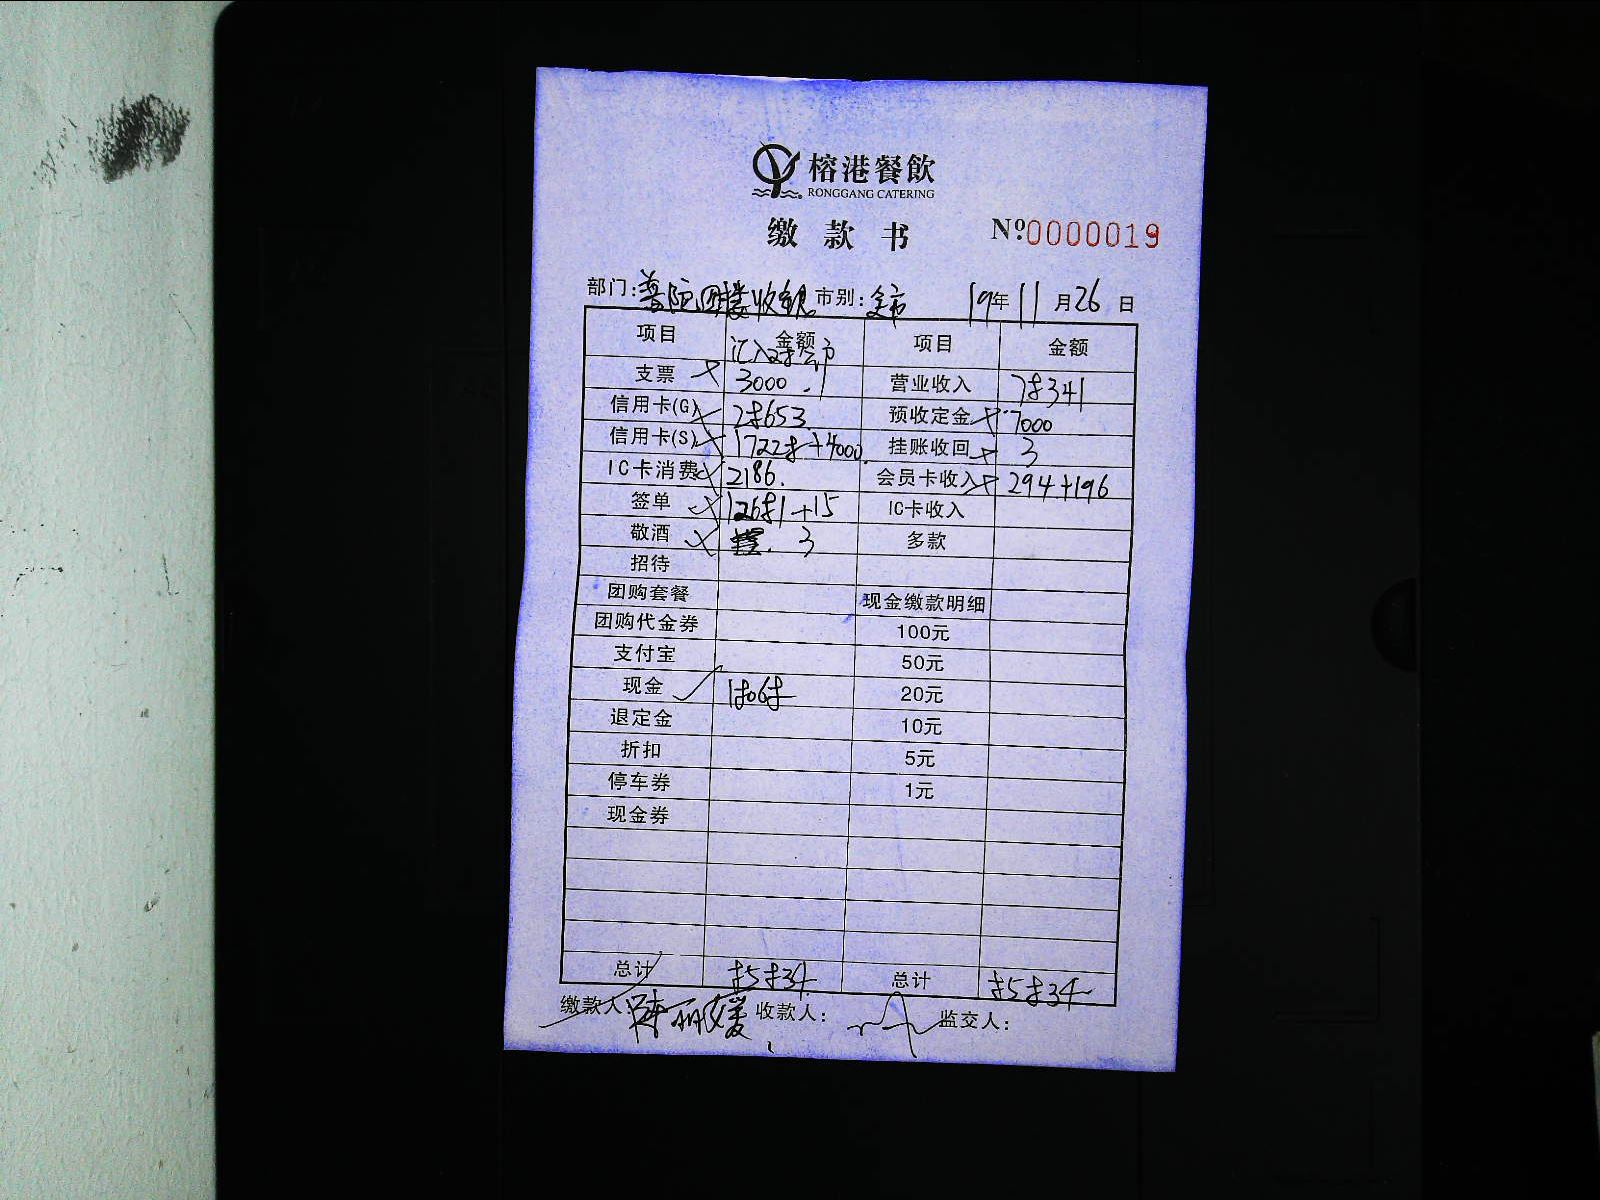 榕港餐飲
RONGGANG CATERING
缴款书 Nº0000019
部门: 普陀四楼收银 市别: 全市 19年11月26日
项目 金额 项目 金额
支票 3000. 营业收入
信用卡(G) 预收定金 7000
信用卡(S) 挂账收回 3
IC卡消费 2186. 会员卡收入 294+196
签单 IC卡收入
敬酒 3 多款
招待
团购套餐 现金缴款明细
团购代金券 100元
支付宝 50元
现金 20元
退定金 10元
折扣 5元
停车券 1元
现金券
总计 总计
缴款人: 陈丽媛 收款人: 监交人: